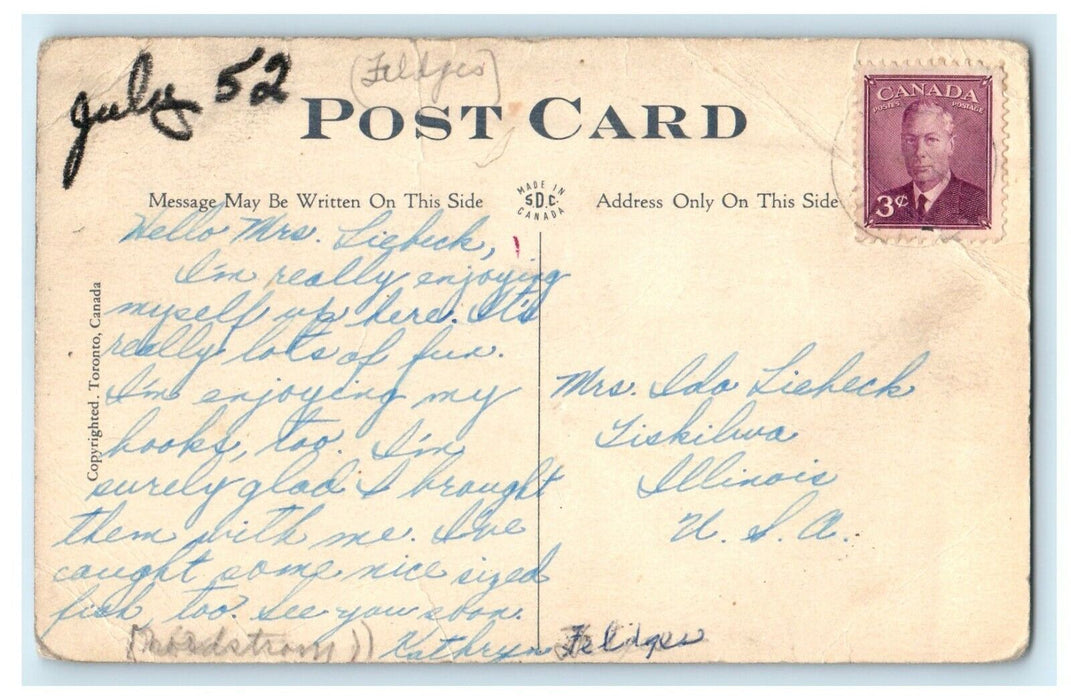 July 52
(Feldges)
POST CARD
Message May Be Written On This Side
MADE IN
S.D.C.
CANADA
Address Only On This Side
CANADA
POSTES POSTAGE
3¢
Copyrighted. Toronto, Canada
Hello Mrs. Liebeck,
I'm really enjoying
myself up here. It's
really lots of fun.
I'm enjoying my
books, too. I'm
surely glad I brought
them with me. I've
caught some nice sized
fish, too. See you soon.
(Nordstrom))
Kathryn Feldges
Mrs. Ida Liebeck
Tiskilwa
Illinois
U. S. A.